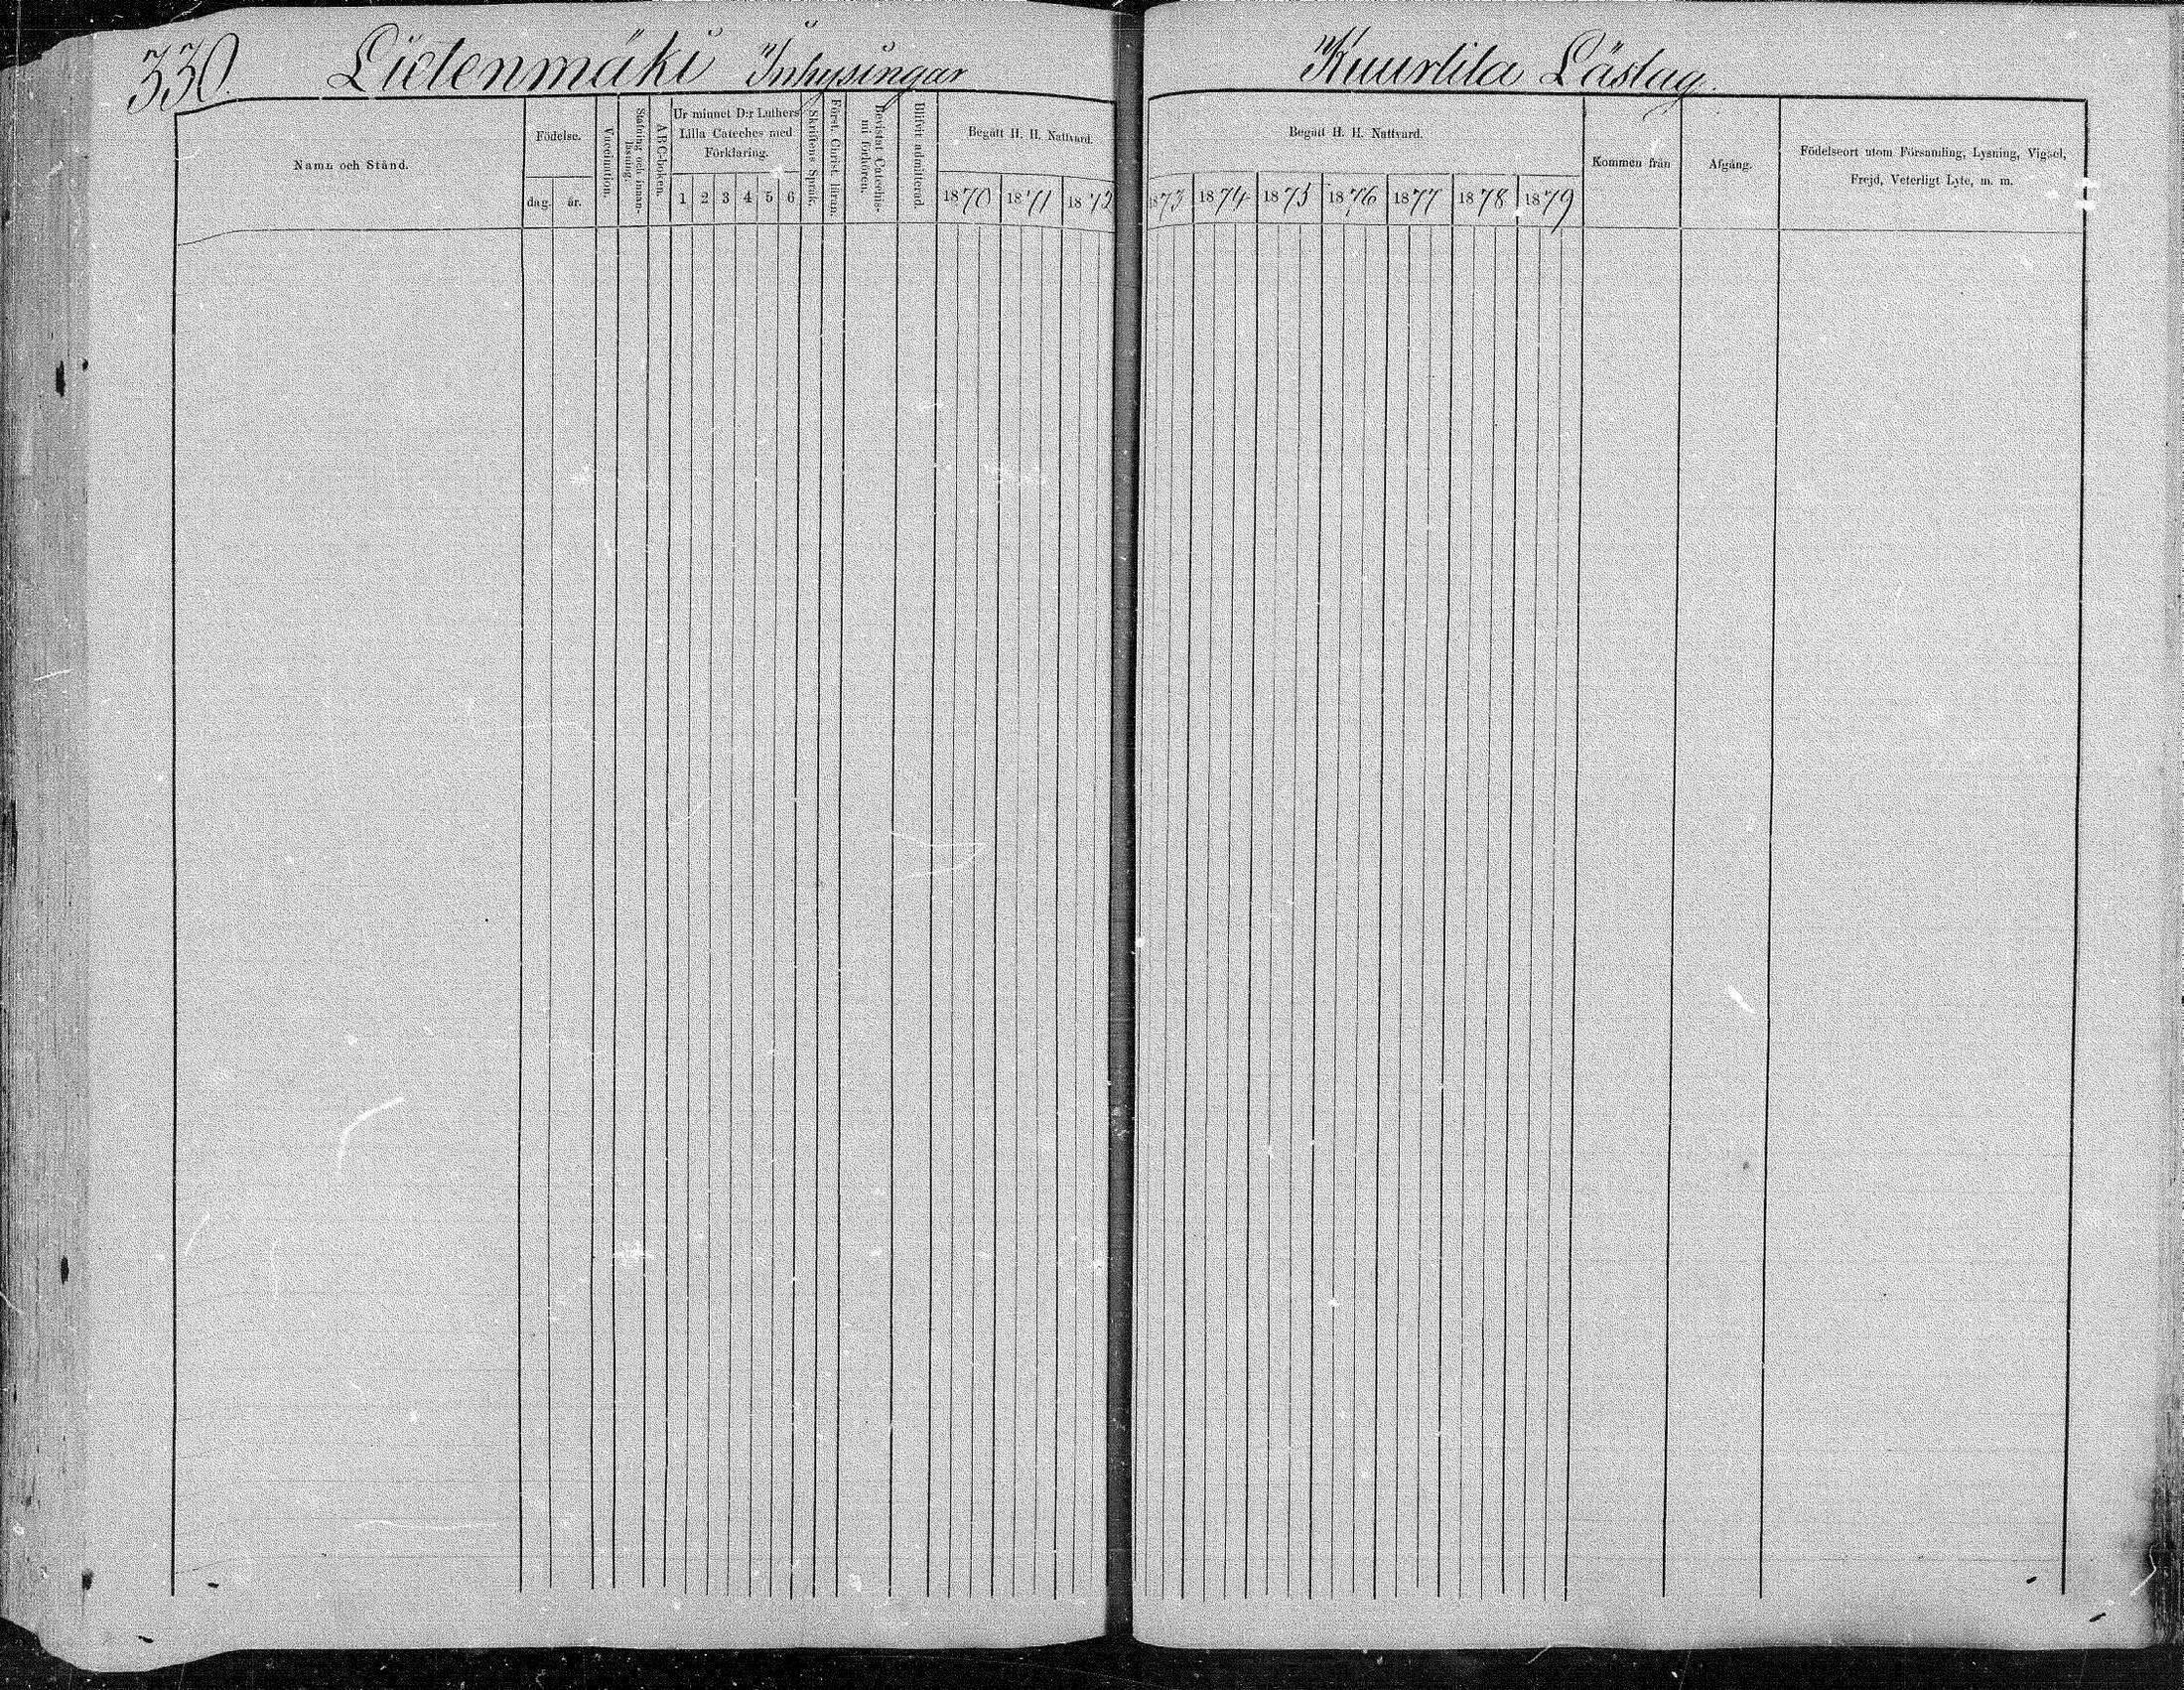 330. Lietenmäki Inhysingar
Kuurtila Läslag.
Namn och Stånd.
Födelse.
dag.
år.
Vaccination.
Stafning och innan-
läsning.
ABC-boken.
Ur minnet D:r Luthers
Lilla Cateches med
Förklaring.
1 2 3 4 5 6
Skriftens Språk.
Först. Christ. läran.
Bevistat Catechis-
mi förhören.
Blifvit admitterad.
Begått H. H. Nattvard.
1870 1871 1872
Begått H. H. Nattvard.
1873 1874 1875 1876 1877 1878 1879
Kommen från
Afgång.
Födelseort utom Församling, Lysning, Vigsel,
Frejd, Veterligt Lyte, m. m.